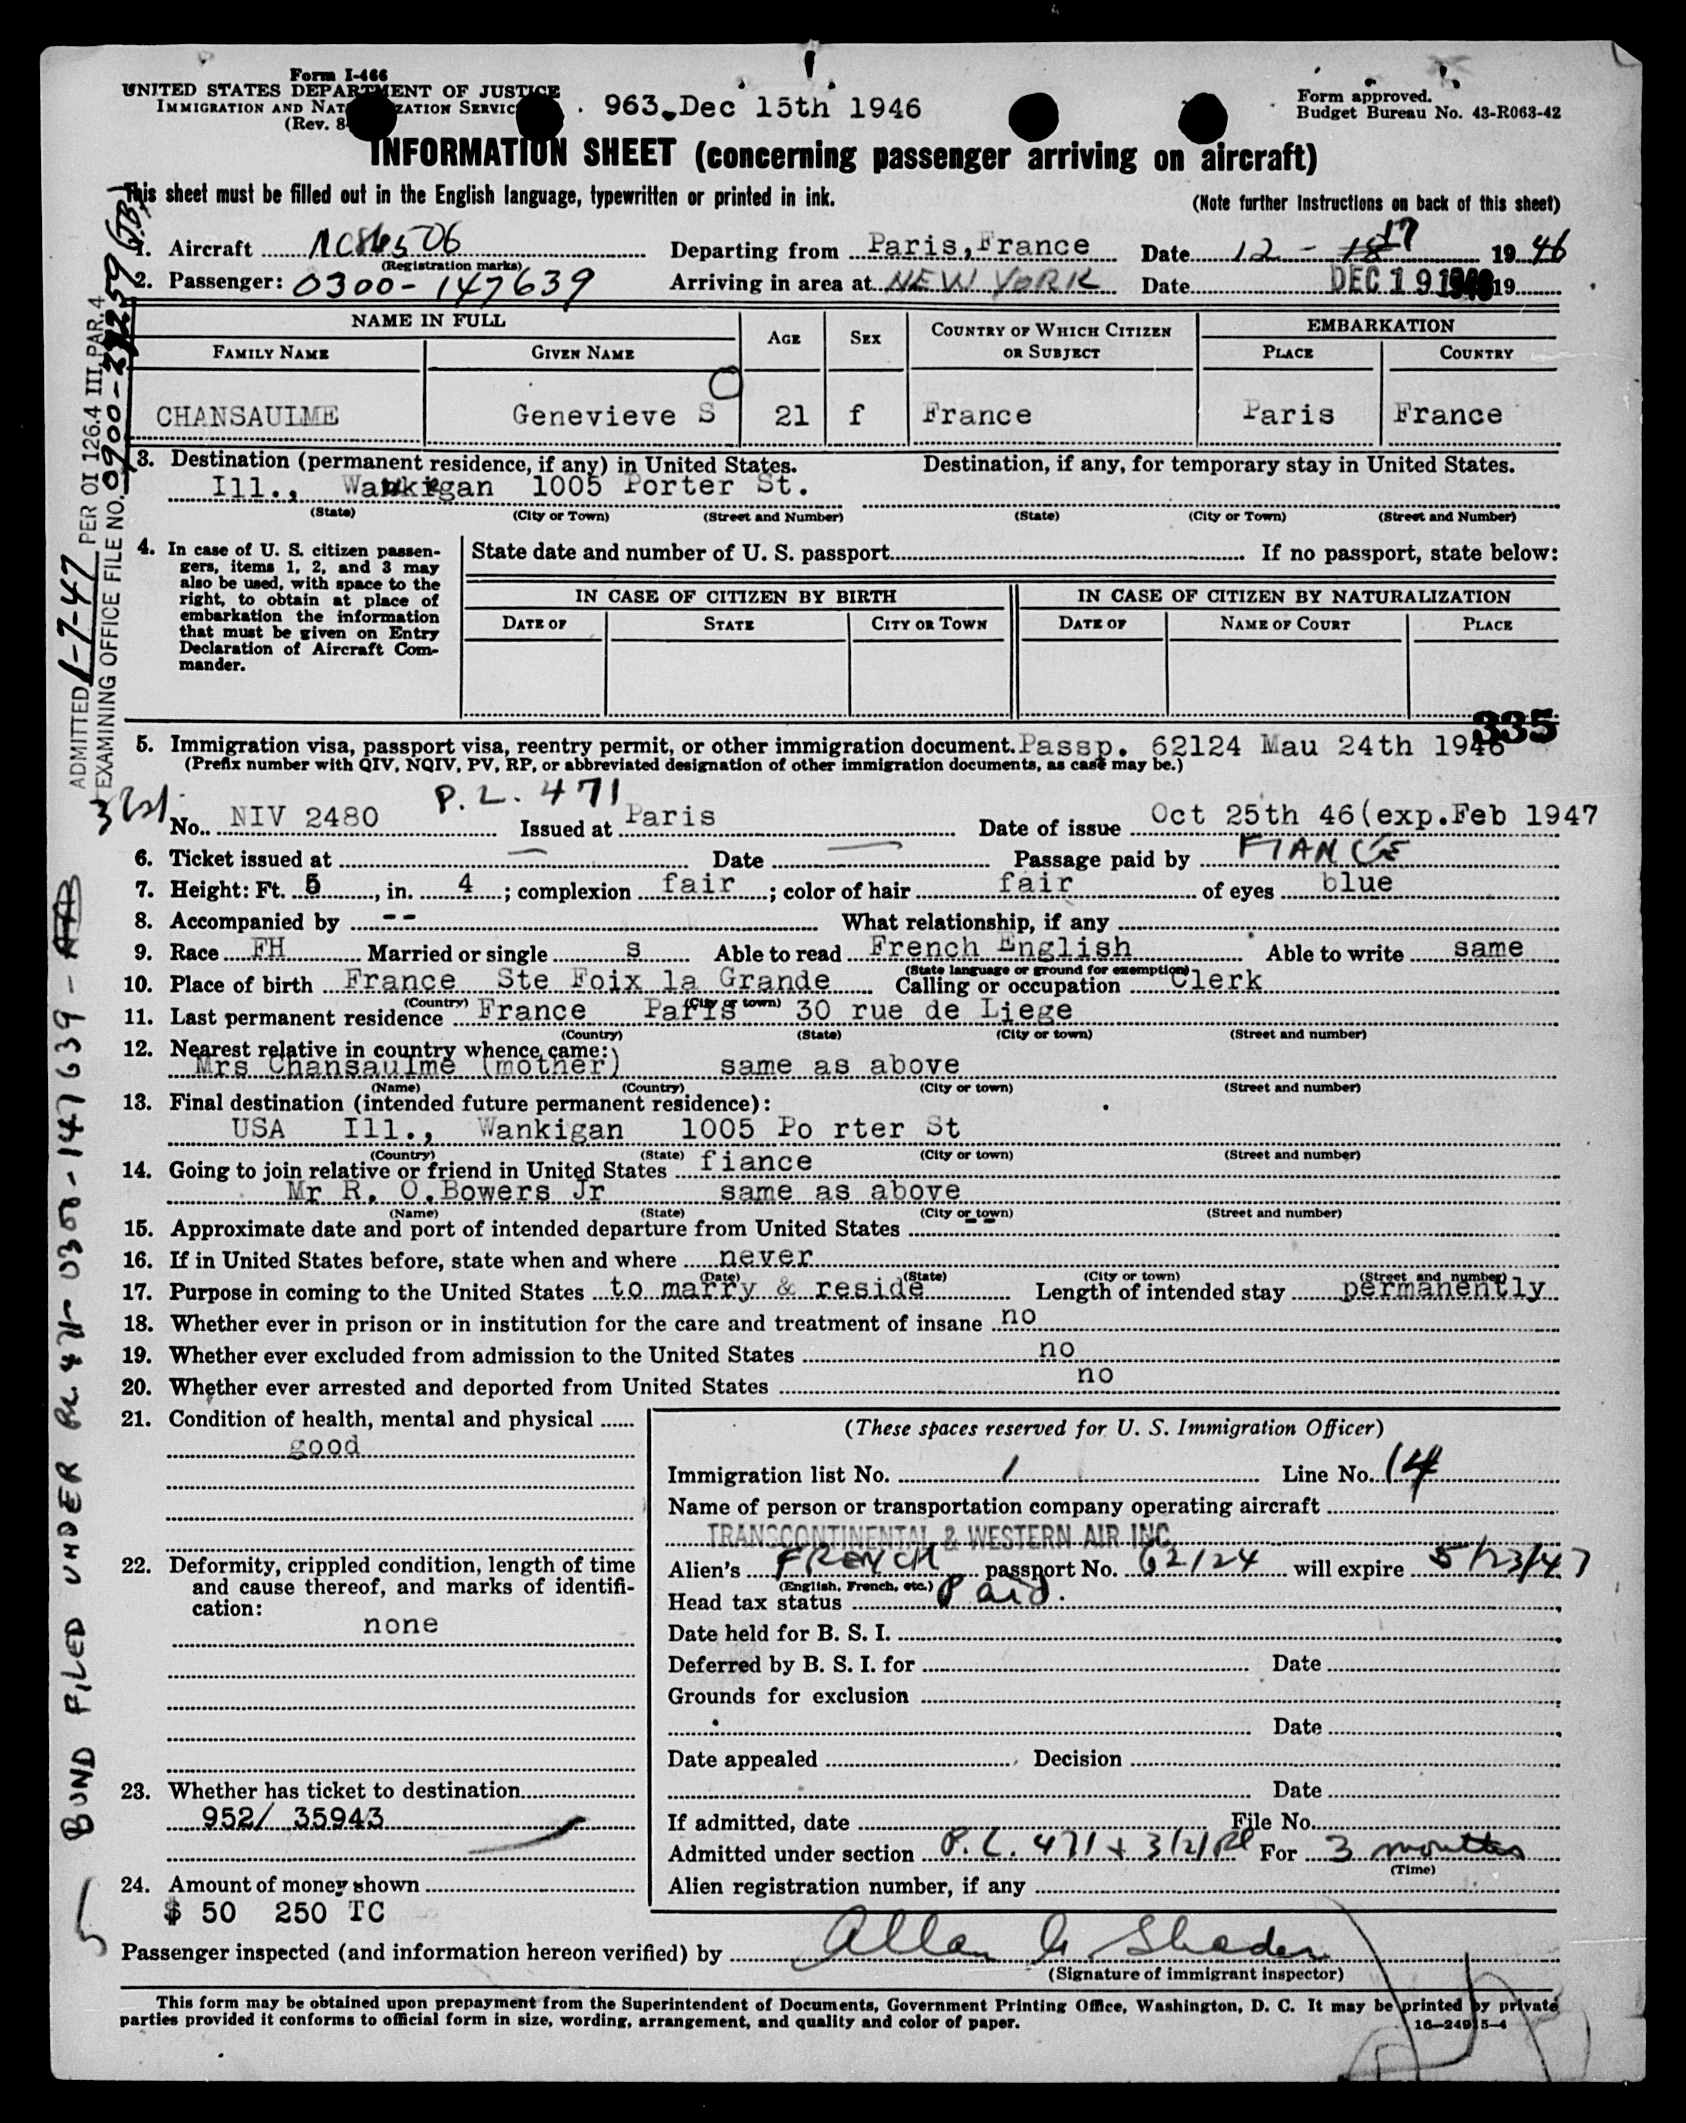 Form I-466
UNITED STATES DEPARTMENT OF JUSTICE
IMMIGRATION AND NATURALIZATION SERVICE
(Rev. 8-
963. Dec 15th 1946
Form approved.
Budget Bureau No. 43-R063-42
INFORMATION SHEET (concerning passenger arriving on aircraft)
This sheet must be filled out in the English language, typewritten or printed in ink.
(Note further Instructions on back of this sheet)
1. Aircraft NC86506 Departing from Paris, France Date 12 - 18 17 1946
(Registration marks)
2. Passenger: 0300-147639 Arriving in area at NEW YORK Date DEC 19 1946 19
NAME IN FULL AGE SEX COUNTRY OF WHICH CITIZEN OR SUBJECT EMBARKATION
FAMILY NAME GIVEN NAME PLACE COUNTRY
CHANSAULME Genevieve S 21 f France Paris France
3. Destination (permanent residence, if any) in United States. Destination, if any, for temporary stay in United States.
Ill., Waukegan 1005 Porter St.
(State) (City or Town) (Street and Number) (State) (City or Town) (Street and Number)
4. In case of U. S. citizen passen-
gers, items 1, 2, and 3 may
also be used, with space to the
right, to obtain at place of
embarkation the information
that must be given on Entry
Declaration of Aircraft Com-
mander.
State date and number of U. S. passport If no passport, state below:
IN CASE OF CITIZEN BY BIRTH IN CASE OF CITIZEN BY NATURALIZATION
DATE OF STATE CITY OR TOWN DATE OF NAME OF COURT PLACE
335
5. Immigration visa, passport visa, reentry permit, or other immigration document. Passp. 62124 Mau 24th 1946
(Prefix number with QIV, NQIV, PV, RP, or abbreviated designation of other immigration documents, as case may be.)
P.L. 471
No. NIV 2480 Issued at Paris Date of issue Oct 25th 46(exp.Feb 1947
6. Ticket issued at — Date — Passage paid by FIANCE
7. Height: Ft. 5, in. 4; complexion fair; color of hair fair of eyes blue
8. Accompanied by -- What relationship, if any
9. Race FH Married or single s Able to read French English Able to write same
(State language or ground for exemption)
10. Place of birth France Ste Foix la Grande Calling or occupation Clerk
(Country) (City or town)
11. Last permanent residence France Paris 30 rue de Liege
(Country) (State) (City or town) (Street and number)
12. Nearest relative in country whence came:
Mrs Chansaulme (mother) same as above
(Name) (Country) (City or town) (Street and number)
13. Final destination (intended future permanent residence):
USA Ill., Wankigan 1005 Po rter St
(Country) (State) (City or town) (Street and number)
14. Going to join relative or friend in United States fiance
Mr R. O.Bowers Jr same as above
(Name) (State) (City or town) (Street and number)
15. Approximate date and port of intended departure from United States --
16. If in United States before, state when and where never
(Date) (State) (City or town) (Street and number)
17. Purpose in coming to the United States to marry & reside Length of intended stay permanently
18. Whether ever in prison or in institution for the care and treatment of insane no
19. Whether ever excluded from admission to the United States no
20. Whether ever arrested and deported from United States no
21. Condition of health, mental and physical
good
22. Deformity, crippled condition, length of time
and cause thereof, and marks of identifi-
cation:
none
23. Whether has ticket to destination
952/ 35943
24. Amount of money shown
$ 50 250 TC
(These spaces reserved for U. S. Immigration Officer)
Immigration list No. 1 Line No. 14
Name of person or transportation company operating aircraft
TRANSCONTINENTAL & WESTERN AIR INC.
Alien's FRENCH passport No. 62124 will expire 5/23/47
(English, French, etc.)
Head tax status Paid.
Date held for B. S. I.
Deferred by B. S. I. for Date
Grounds for exclusion
Date
Date appealed Decision
Date
If admitted, date File No.
Admitted under section P.L. 471 + 3(2) Rd For 3 months
(Time)
Alien registration number, if any
Passenger inspected (and information hereon verified) by Allan G Shader
(Signature of immigrant inspector)
This form may be obtained upon prepayment from the Superintendent of Documents, Government Printing Office, Washington, D. C. It may be printed by private
parties provided it conforms to official form in size, wording, arrangement, and quality and color of paper.
16—24915-4
ADMITTED 1-7-47 PER OI 126.4 III, PAR. 4
EXAMINING OFFICE FILE NO. 0900-
BOND FILED UNDER PL 471- 0300-147639 -